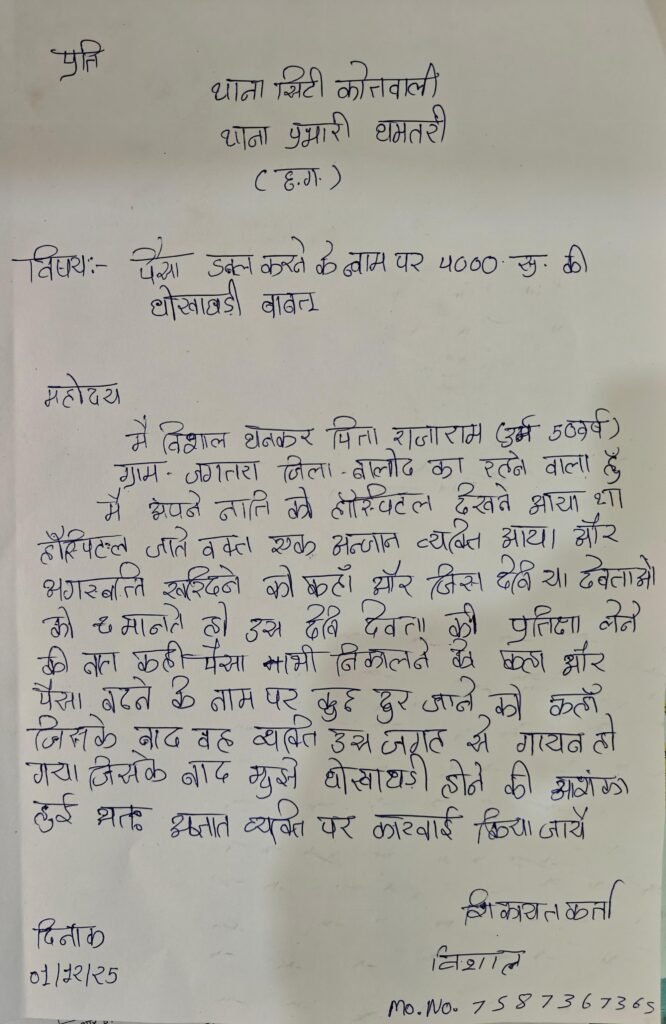 प्रति
थाना सिटी कोतवाली
थाना प्रभारी धमतरी
( छ.ग. )
विषय:- पैसा डबल करने के नाम पर 4000 रु. की
धोखाधड़ी बाबत्
महोदय
मै विशाल धनकर पिता राजाराम (उर्म 50 वर्ष)
ग्राम - जगतरा जिला - बालोद का रहने वाला हुँ
मै अपने नाति को हॉस्पिटल देखने आया था
हॉस्पिटल जाते वक्त एक अन्जान व्यक्ति आया और
अगरबत्ति खरिदने को कहाँ और जिस देवि या देवताओ
को मानते हो उस देवि देवता की प्रतिक्षा लेने
की बात कही पैसा निकालने के कहा और
पैसा बढने के नाम पर कुछ दुर जाने को कहाँ
जिसके बाद वह व्यक्ति उस जगह से गायब हो
गया जिसके बाद मुझे धोखाधड़ी होने की आशंका
हुई अतः अज्ञात व्यक्ति पर कारवाई किया जाये
शिकायतकर्ता
दिनाक
विशाल
01/12/25
Mo. No. 7587367365